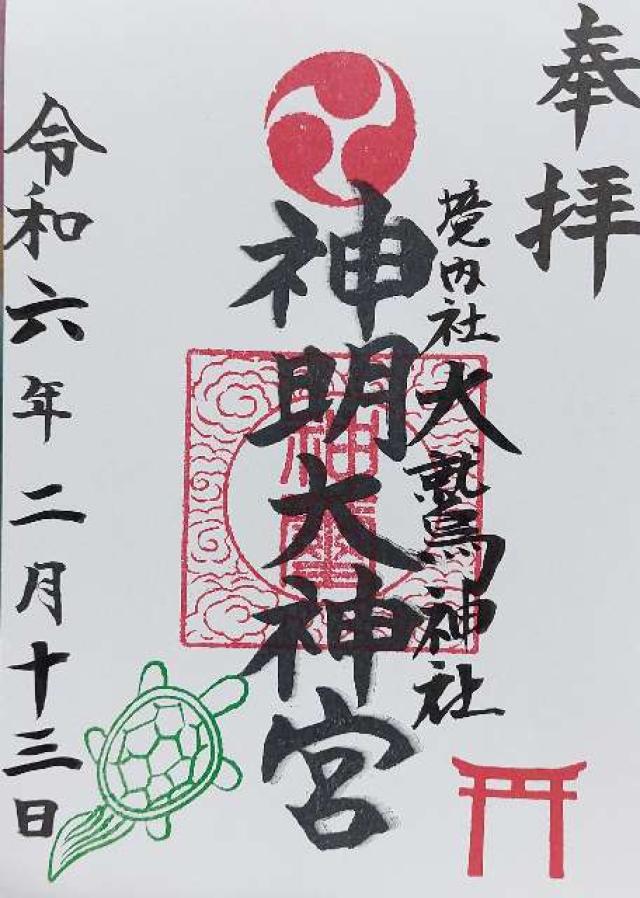 奉拝
境内社大鷲神社
神明大神宮
令和六年二月十三日